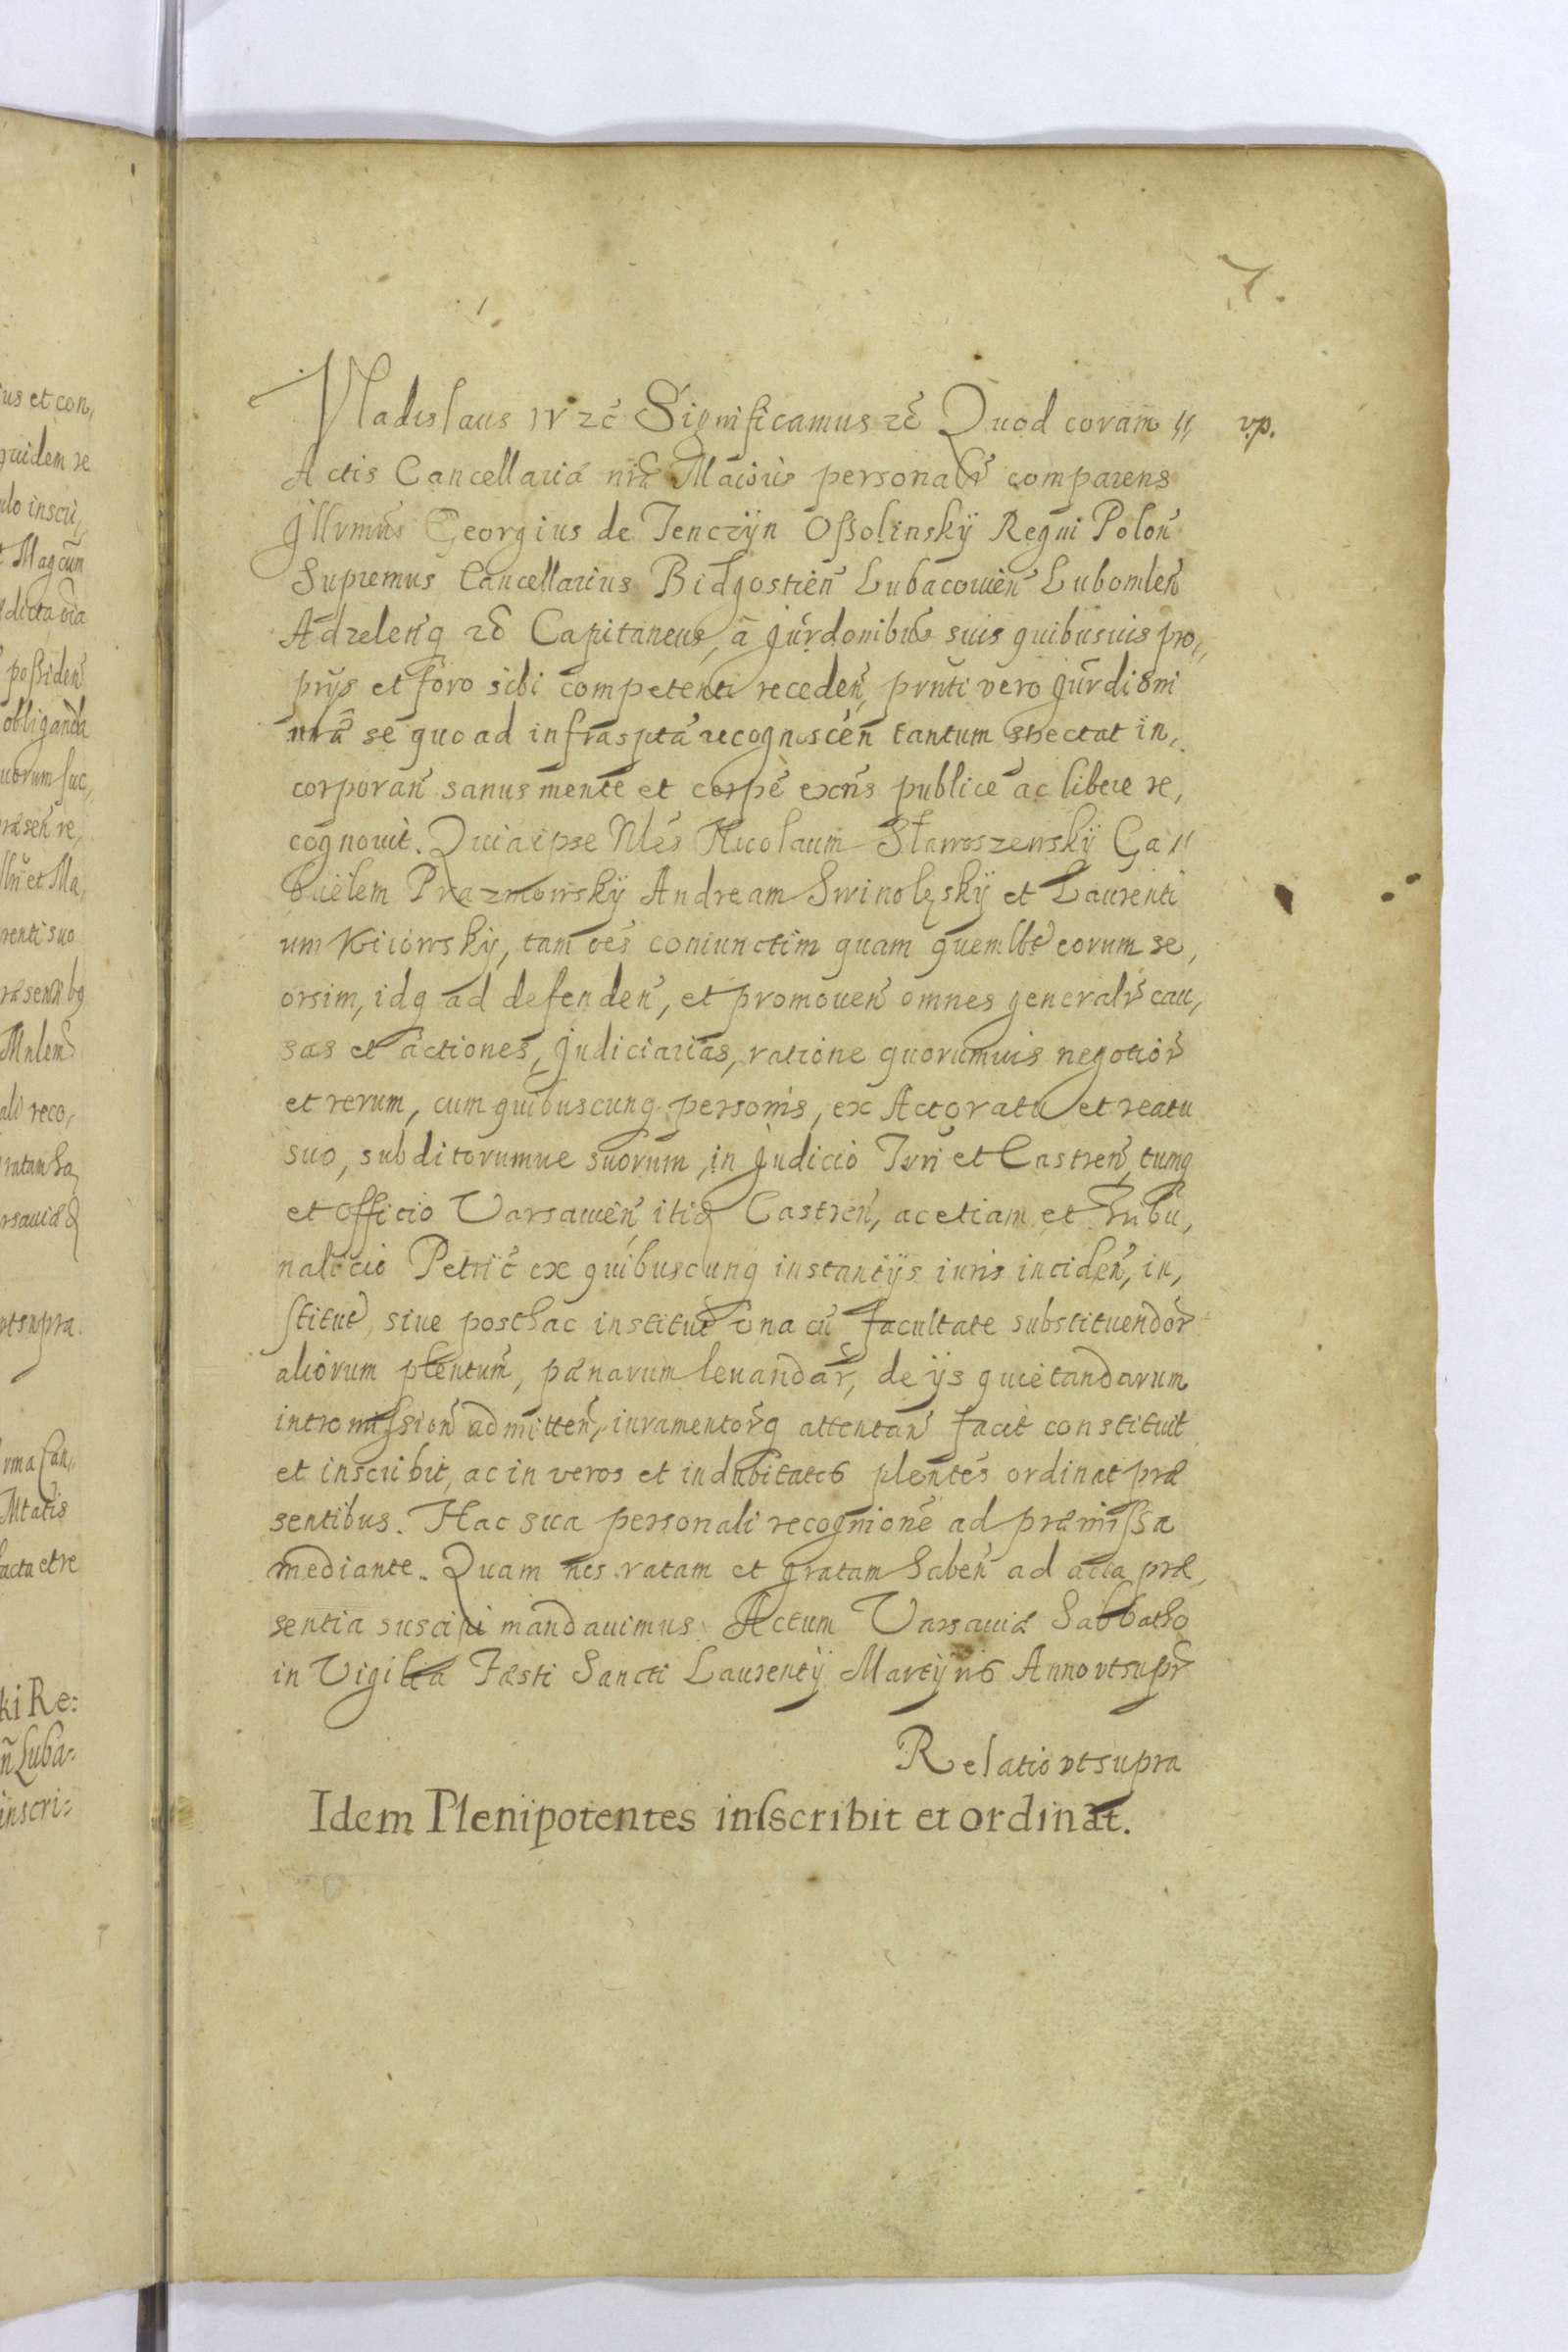 7.
Vladislaus IV zc̃ Significamus zc̃ Quod coram v.p.
Actis Cancellariæ nr̃æ Maioris personalr̃ comparens
Jllvmus Georgius de Tenczÿn Oßolinskÿ Regni Polon̄
Supremus Cancellarius Bidgostien̄ Lubacouien̄ Lubomlen̄
Adzelenq zc̃ Capitaneus, a Jurdonibus suis quibusuis pro,,
prijs et foro sibi competenti receden̄, prnti vero Jurdioni
nr̃æ se quo ad infraspta recognoscen̄ tantum spectat in,
corporan̄ sanus mente et corpe exns publice ac libere re,
cognouit. Quia ipse Nles Nicolaum Starroszewskÿ Ga,,
brielem Prazmowskÿ Andream Swinolzskÿ et Laurenti
um Kiiowskÿ, tam oes coniunctim quam quemlbt eorum se,
orsim, idq ad defenden̄, et promouen̄ omnes generalr̃ cau,
sas et actiones, Judiciarias, ratione quorumuis negotior̃
et rerum, cum quibuscunq personis, ex Actoratu et reatu
suo, subditorumue suorum, in Judicio Trri et Castren̄, tumq
et officio Varsauien̄, itidẽ Castren̄, ac etiam et Tribu,
nalitio Petric̃ ex quibuscunq instantijs iuris inciden̄, in,
stitut, siue posthac instituẽ vna cũ facultate substituendor̃
aliorum plentum, pænarum leuandar̃, de ijs quietandarum
intromißion̄ admitten̄, iuramentorq attentan̄ facit constituit
et inscribit, ac in veros et indubitatos plentes ordinat præ
sentibus. Hac sua personali recognione ad præmißa
mediante. Quam nos ratam et gratam haben̄ ad acta præ,
sentia suscipi mandauimus. Actum Varsauiæ Sabbatho
in Vigilia Fæsti Sancti Laurentÿ Martÿris Anno vtsupr̃
Relatio vtsupra
Idem Plenipotentes inscribit et ordinat.